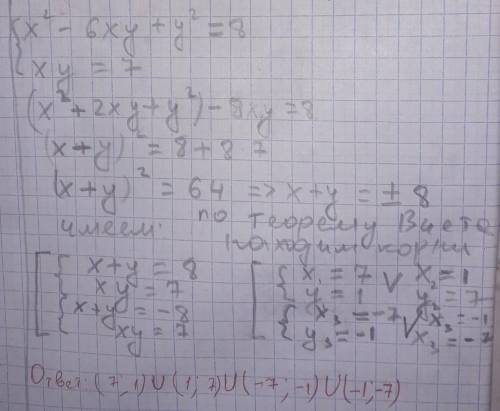 x² - 6xy + y² = 8
xy = 7
(x² + 2xy + y²) - 8xy = 8
(x + y)² = 8 + 8·7
(x + y)² = 64 => x + y = ± 8
имеем: по теорему Виета
находим корни
x + y = 8
xy = 7
x + y = -8
xy = 7
x₁ = 7 ∨ x₂ = 1
y₁ = 1 y₂ = 7
x₃ = -7 ∨ x₃ = -1
y₃ = -1 x₃ = -7
Ответ: (7; 1) U (1; 7) U (-7; -1) U (-1; -7)